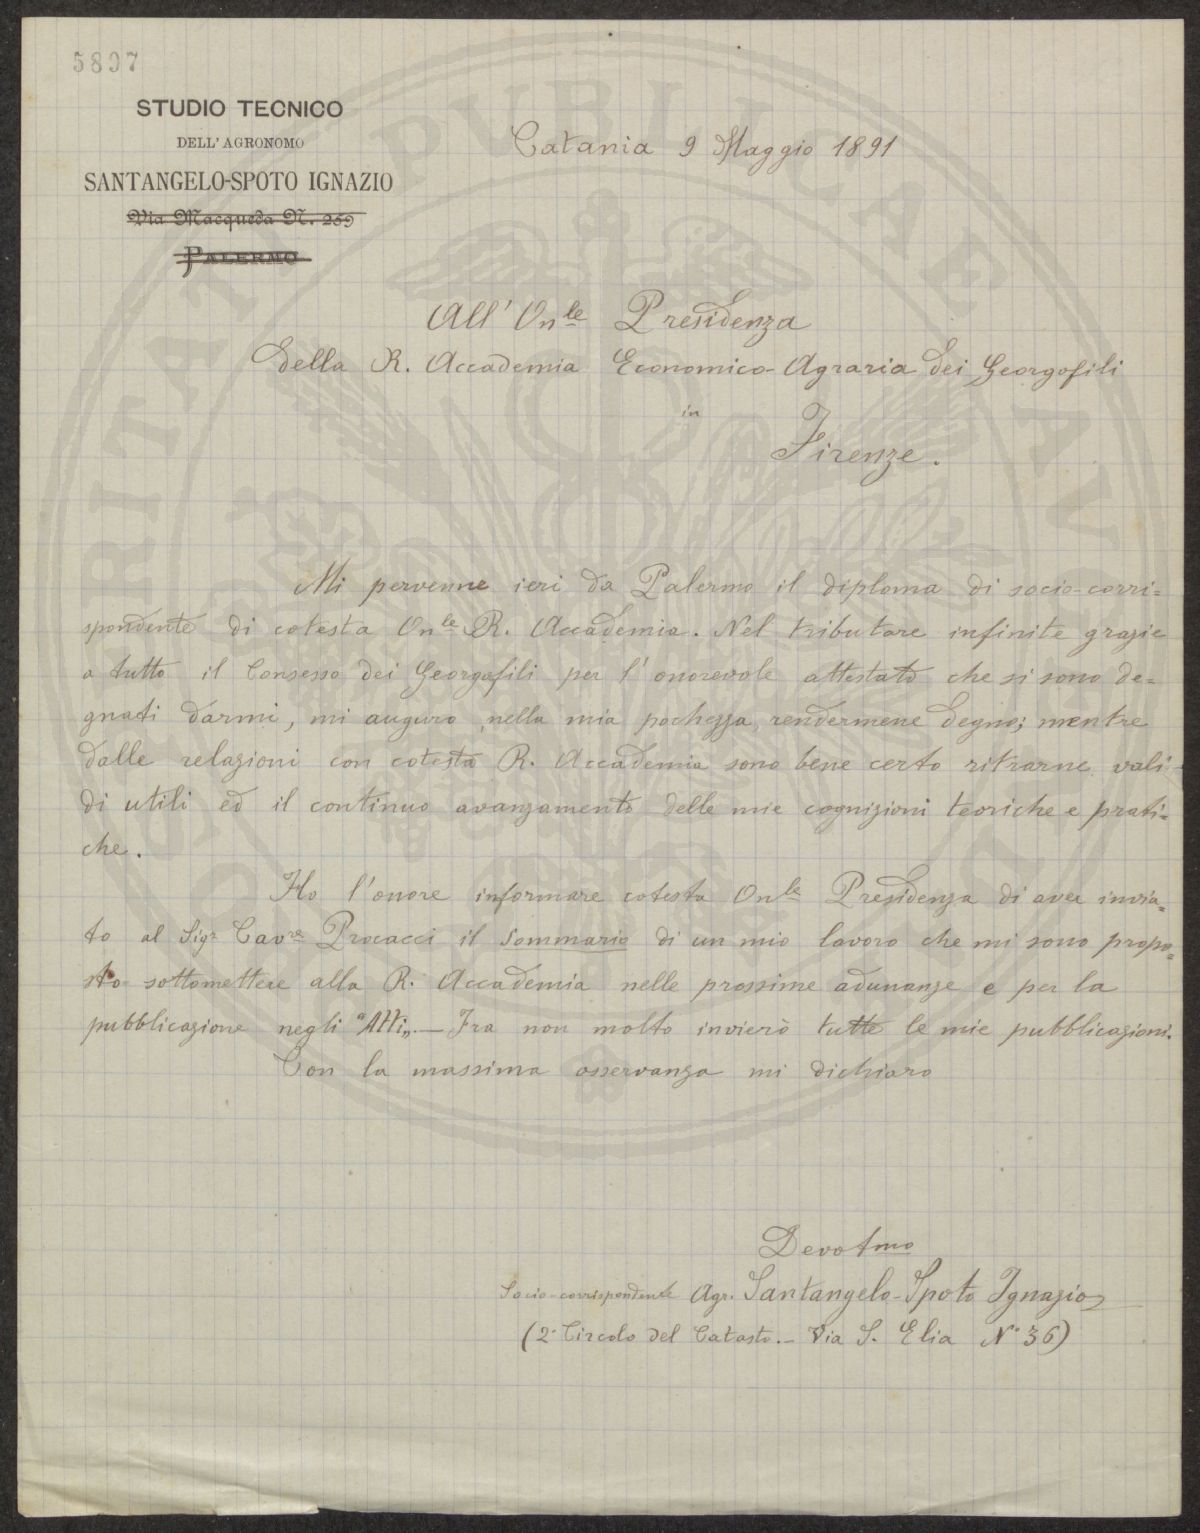 5897
STUDIO TECNICO
DELL'AGRONOMO
SANTANGELO-SPOTO IGNAZIO
Via Macqueda N. 259
PALERMO
Catania 9 Maggio 1891
All' On.le Presidenza
della R. Accademia Economico-Agraria dei Georgofili
in
Firenze.
Mi pervenne ieri da Palermo il diploma di socio-corri=
spondente di cotesta On.le R. Accademia. Nel tributare infinite grazie
a tutto il Consesso dei Georgofili per l'onorevole attestato che si sono de=
gnati darmi, mi auguro, nella mia pochezza, rendermene degno; mentre
dalle relazioni con cotesta R. Accademia sono bene certo ritrarne vali-
di utili ed il continuo avanzamento delle mie cognizioni teoriche e prati=
che.
Ho l'onore informare cotesta On.le Presidenza di aver invia=
to al Sigr Cavre Procacci il Sommario di un mio lavoro che mi sono propo=
sto sottomettere alla R. Accademia nelle prossime adunanze e per la
pubblicazione negli "Atti„.— Fra non molto invierò tutte le mie pubblicazioni.
Con la massima osservanza mi dichiaro
Devotmo
Socio-corrispondente Agr. Santangelo-Spoto Ignazio
(2° Circolo del Catasto.- Via S. Elia N° 36)
PUBLICAE